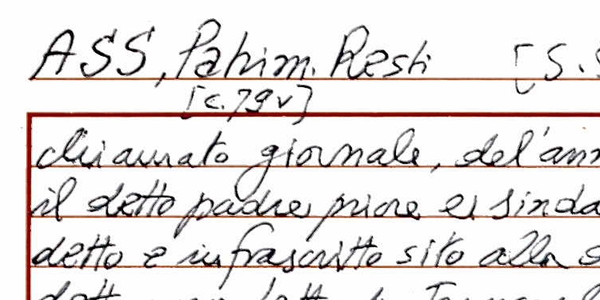 ASS, Patrim. Resti [S.S
[c. 79v]
chiamato giornale, del'ann
il detto padre priore e sinda
detto e infrascritto sito alla